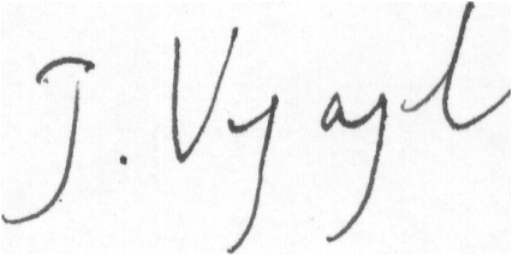 J. Vyajl